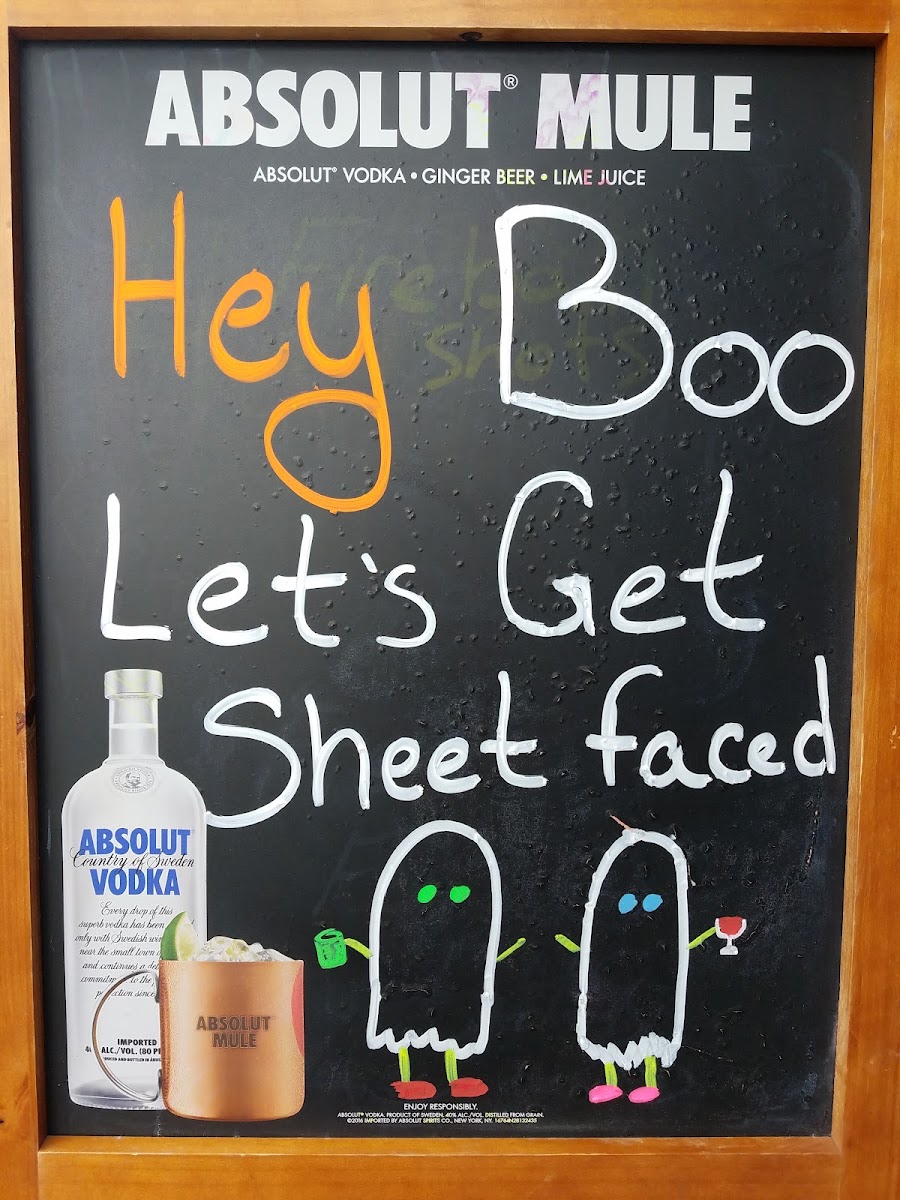 ABSOLUT® MULE
ABSOLUT® VODKA • GINGER BEER • LIME JUICE
Hey Boo
Fireball
Shots
Let's Get
Sheet faced
ABSOLUT
Country of Sweden
VODKA
Every drop of this
superb vodka has been
only with Swedish
near the small town
and continues a
to the
since
IMPORTED
ALC./VOL. (80
ABSOLUT
MULE
ENJOY RESPONSIBLY.
ABSOLUT® VODKA. PRODUCT OF SWEDEN. 40% ALC./VOL. DISTILLED FROM GRAIN.
©2016 IMPORTED BY ABSOLUT SPIRITS CO., NEW YORK, NY.